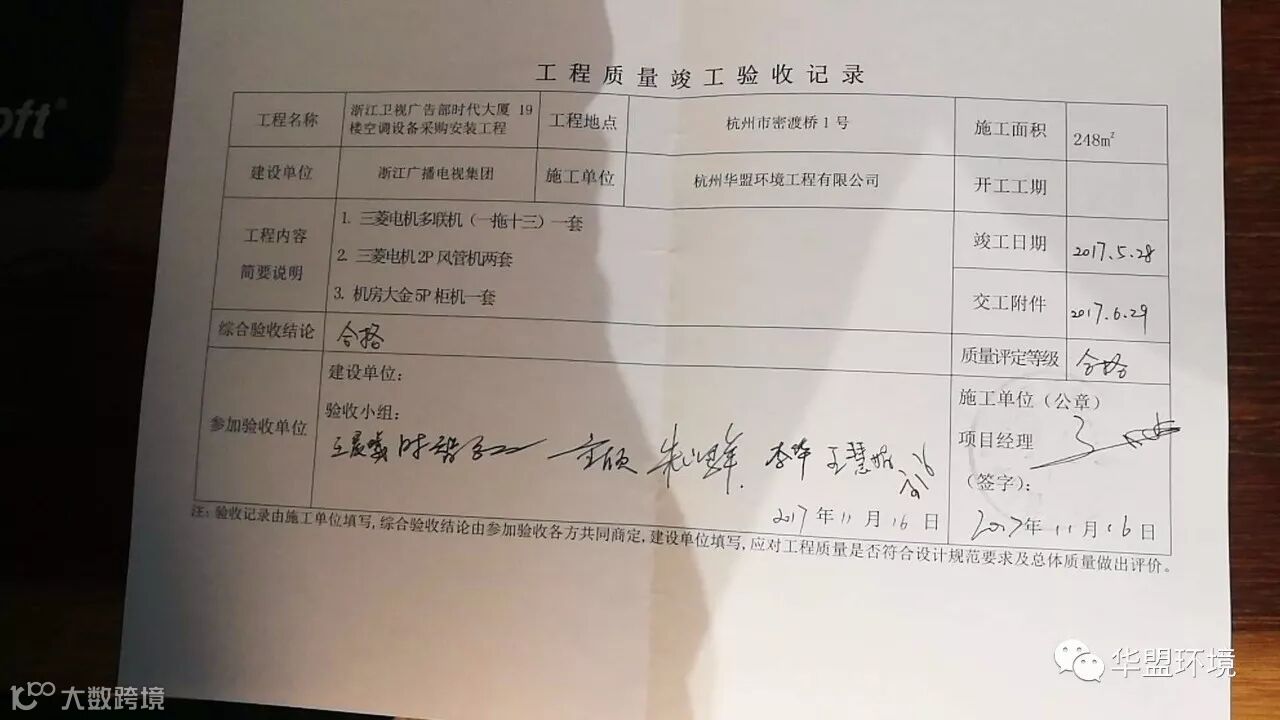 oft
工程质量竣工验收记录
工程名称 浙江卫视广告部时代大厦 19 工程地点 杭州市密渡桥 1 号 施工面积 248㎡
楼空调设备采购安装工程
建设单位 浙江广播电视集团 施工单位 杭州华盟环境工程有限公司 开工工期
工程内容 1. 三菱电机多联机（一拖十三）一套 竣工日期 2017.5.28
简要说明 2. 三菱电机 2P 风管机两套
3. 机房大金 5P 柜机一套 交工附件 2017.6.29
综合验收结论 合格 质量评定等级 合格
参加验收单位 建设单位：
验收小组：
李华 王慧
2017 年 11 月 16 日
施工单位（公章）
项目经理
（签字）：
2017年 11 月 16 日
注：验收记录由施工单位填写，综合验收结论由参加验收各方共同商定，建设单位填写，应对工程质量是否符合设计规范要求及总体质量做出评价。
华盟环境
大数跨境